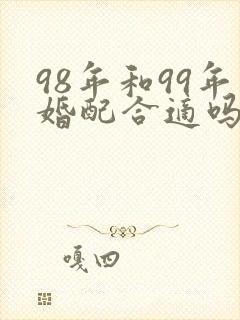 98年和99年
婚配合适吗
嘎四